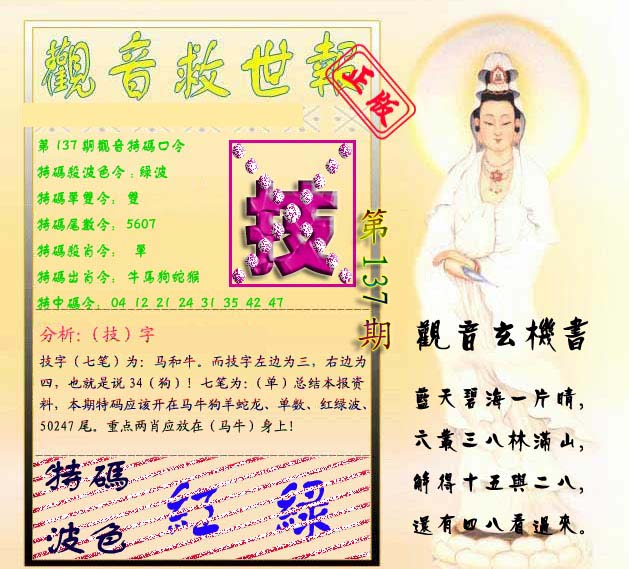 觀音救世報
正版
第137期觀音特碼口令
特碼殺波色令:綠波
特碼單雙令: 雙
特碼尾數令: 5607
特碼殺肖令: 單
特碼出肖令: 牛馬狗蛇猴
特中碼令: 04 12 21 24 31 35 42 47
技
第137期
分析:(技)字
技字(七笔)为:马和牛。而技字左边为三,右边为
四,也就是说34(狗)!七笔为:(单)总结本报资
料,本期特码应该开在马牛狗羊蛇龙、单数、红绿波、
50247尾。重点两肖应放在(马牛)身上!
特碼
波色
紅 綠
觀音玄機書
藍天碧海一片晴,
六叢三八林滿山,
解得十五與二八,
還有四八看過來。